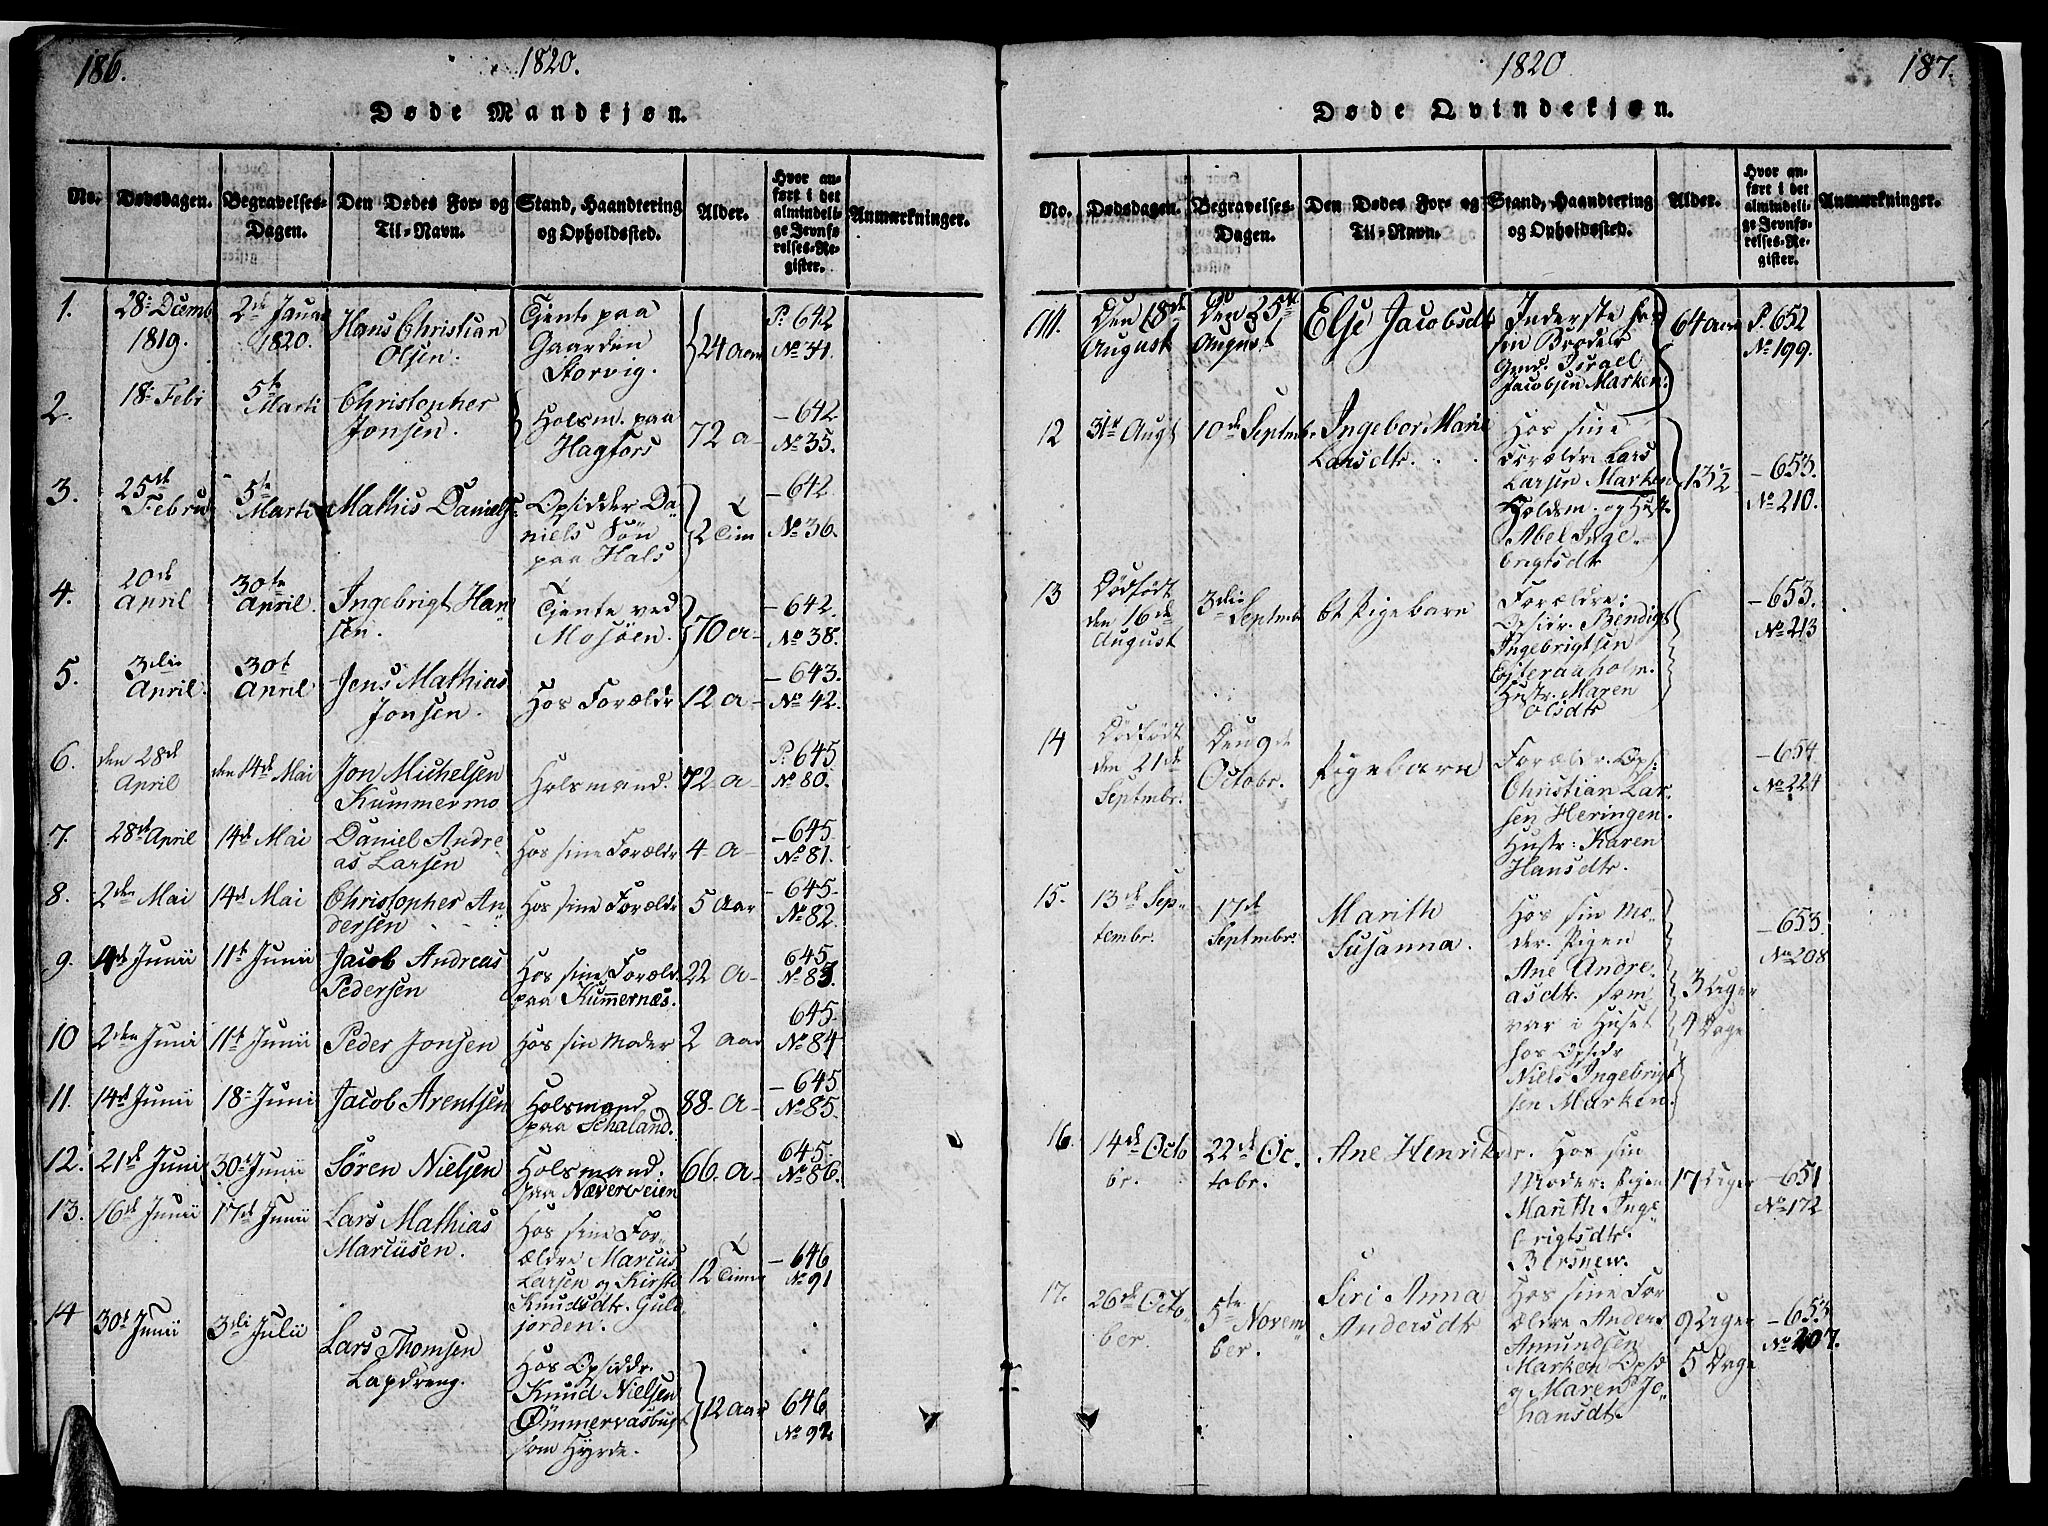 186.
1820.
Døde Mandkjøn.
No. Dødsdagen. Begravelses-Dagen. Den Dødes For- og Til-Navn. Stand, Haandtering og Opholdssted. Alder. Hvor anført i det almindelige Jevnførelses-Register. Anmærkninger.
1. 28- Decemb 1819. 2de Januar 1820. Hans Christian Olsen. Tjente paa Gaarden Storvig. 24 Aar P. 642 No 34.
2. 18- Febr 5te Marti Christopher Jonsen. Holsm. paa Hagfors 72 a- - 642 No 35.
3. 25de Febru 5te Marti Mathis Daniels. Opsidder Daniels Søn paa Hals 2 Tim - 642 No 36.
4. 20de April 30te April. Ingebrigt Hansen. Tjente ved Mosöen. 70 a- - 642. No 38.
5. 3die April. 30t April Jens Mathias Jonsen. Hos Forældr 12 a- - 643. No 42.
6. den 28de April den 14de Mai Jon Michelsen Kummermo Holsmand. 72 a- P. 645 No 80.
7. 28de April 14de Mai Daniel Andreas Larsen Hos sine Forældr 4- a- - 645. No 81.
8. 2den Mai 14de Mai Christopher Andersen Hos sine Forældr 5 Aar - 645. No 82.
9. 4de Junii 11te Junii Jacob Andreas Pedersen Hos sine Foræld. paa Kummernæs. 22 a- 645. No 83.
10 2den Junii 11te Junii Peder Jonsen Hos sin Moder 2 Aar 645. No 84
11. 14de Junii 18- Juni Jacob Arentsen Holsmand paa Schaland. 88- a- - 645 No 85.
12. 21de Juni 30te Junii Sören Nielsen Holsmand. paa Næverveien 66- a- 645. No 86.
13. 16de Junii 17de Junii Lars Mathias Marcusen. Hos sine Forældre Marcus Larsen og Kirsti Knudsdtr. Guldjorden. 12 Timer - 646 No 91
14 30te Junii 3die Julii Lars Thomsen Lapdreng. Hos Opsiddr. Knud Nielsen som Hyrde. 12 Aar 646 No 92
1820
187.
Døde Qvindekjøn.
No. Dødsdagen. Begravelses-Dagen. Den Dødes For- og Til-Navn. Stand, Haandtering og Opholdssted. Alder. Hvor anført i det almindelige Jevnførelses-Register. Anmærkninger.
11. Den 18de August Den 25de August Else Jacobsdtr Inderste hos sin Broder Gmd. Israel Jacobsen Marken. 64 Aar P. 652 No 199.
12 31te Augt 10de Septmbr. Ingebor Marie Larsdtr. Hos sine Forældre Lars Larsen Marken Holdsm. og Hustr Abel Ingebrigtsdtr 13½ - 653. No 210.
13 Dödfödt den 16de August 3die Septmbr et Pigebarn Forældre: Opsidr. Bendigt Ingebrigtsen Hustr. Maren Olsdtr - 653. No 213
14 Dödfödt den 21de Septmbr. Den 9de Octobr. Pigebarn Forældr. Ops: Christian Larsen Heringen. Hustr: Karen Hansdtr. - 654 No 224
15. 13de Septembr. 17de Septmbr. Marith Susanna. Hos sin Moder. Pigen Ane Andreasdtr. som var i Huset hos Opsidr Niels Ingebrigtsen Marken. 3 Uger 4 Dage - 653. No 208
16. 14de Octobr. 22de Octobr. Ane Henriksdr. Hos sin Moder: Pigen Marith Ingebrigtsdtr. 17 Uger - 651 No 172
17. 26de October. 5te November. Siri Anna Andersdtr Hos sine Forældre Anders Amundsen Marken Opsd og Maren Johansdt. 9 Uger 5 Dage - 653. No 207.